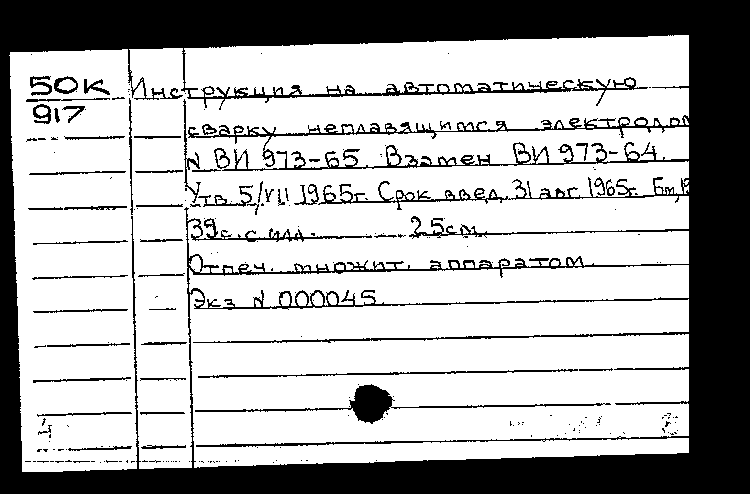 50К
917
Инструкция на автоматическую
сварку неплавящимся электродом
№ ВИ 973-65. Взамен ВИ 973-64.
Утв. 5/VII 1965г. Срок введ. 31 авг. 1965г. Б.м.,
39с. с илл. 25см.
Отпеч. множит. аппаратом.
Экз № 000045.